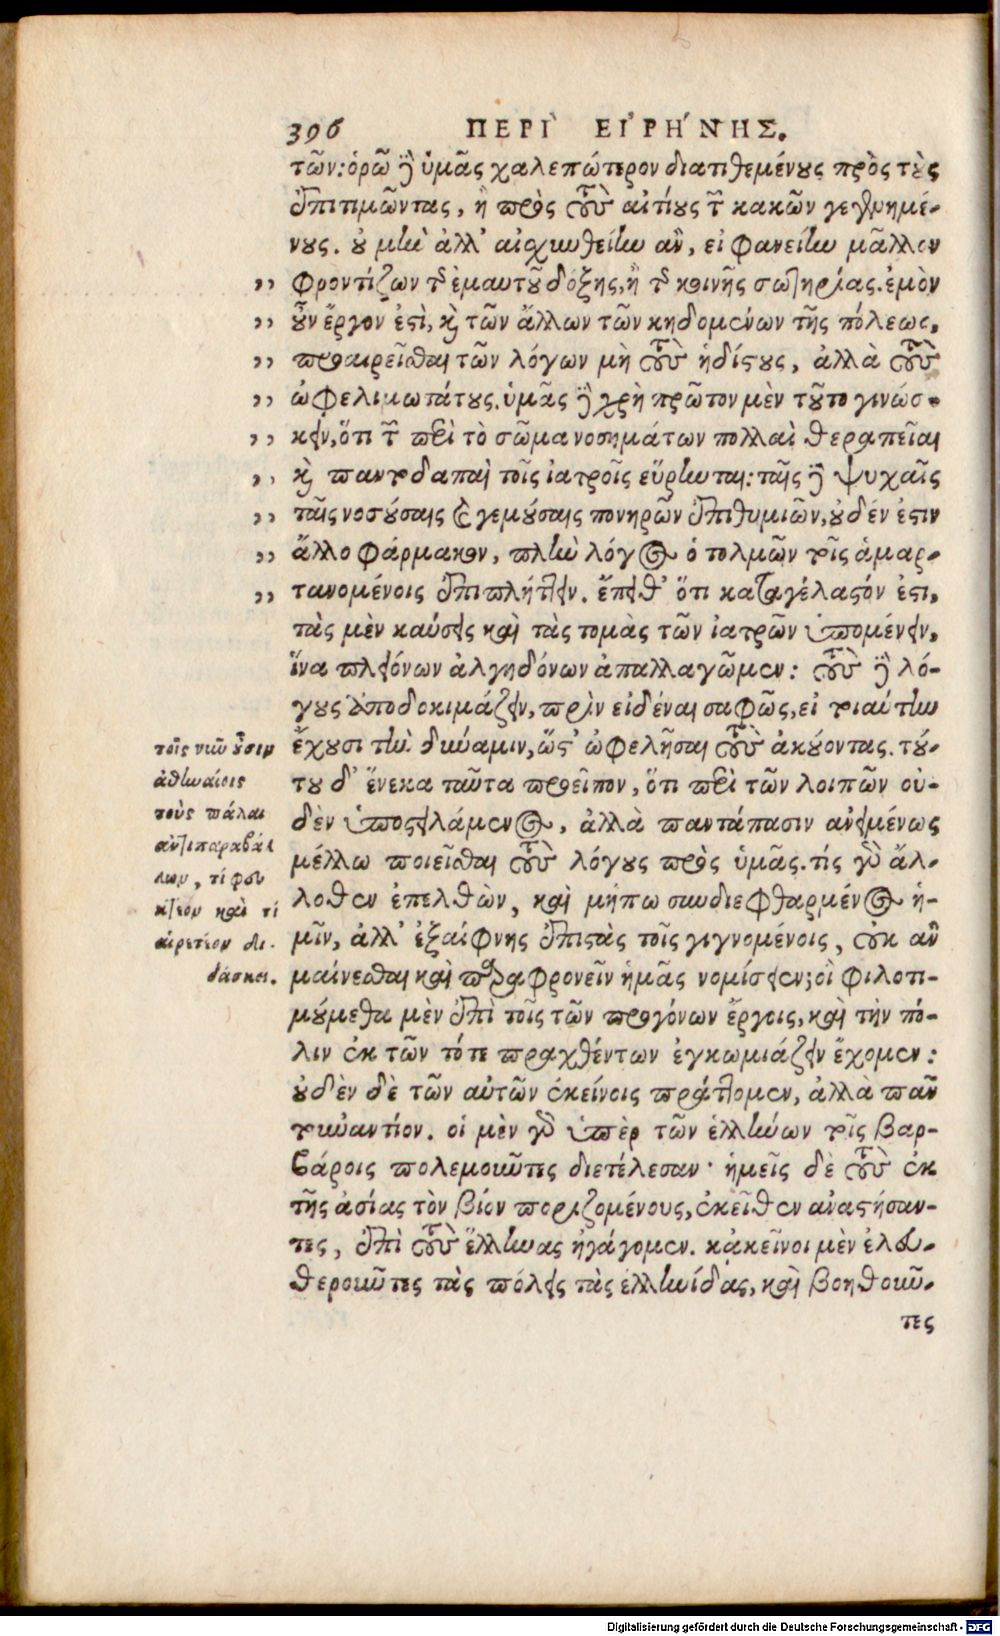 396 ΠΕΡῚ ΕἸΡΉΝΗΣ.
τῶν: ὁρῶ γὰρ ὑμᾶς χαλεπώτερον διατιθεμένους πρὸς τοὺς
ἐπιτιμῶντας, ἢ πρὸς τοὺς αἰτίους τῶν κακῶν γεγενημέ-
νους. οὐ μὴν ἀλλ’ αἰσχυνθείην ἂν, εἰ φανείην μᾶλλον
„ φροντίζων τῆς ἐμαυτοῦ δόξης, ἢ τῆς κοινῆς σωτηρίας. ἐμὸν
„ οὖν ἔργον ἐστὶ, καὶ τῶν ἄλλων τῶν κηδομένων τῆς πόλεως,
„ προαιρεῖσθαι τῶν λόγων μὴ τοὺς ἡδίστους, ἀλλὰ τοὺς
„ ὠφελιμωτάτους. ὑμᾶς δὲ χρὴ πρῶτον μὲν τοῦτο γινώσ-
„ κειν, ὅτι τῶν περὶ τὸ σῶμα νοσημάτων πολλαὶ θεραπεῖαι
„ καὶ παντοδαπαὶ τοῖς ἰατροῖς εὕρηνται: ταῖς δὲ ψυχαῖς
„ ταῖς νοσούσαις καὶ γεμούσαις πονηρῶν ἐπιθυμιῶν, οὐδέν ἐστιν
„ ἄλλο φάρμακον, πλὴν λόγος ὁ τολμῶν τοῖς ἁμαρ-
„ τανομένοις ἐπιπλήττειν. ἔπειθ’ ὅτι καταγέλαστόν ἐστι,
τὰς μὲν καύσεις καὶ τὰς τομὰς τῶν ἰατρῶν ὑπομένειν,
ἵνα πλειόνων ἀλγηδόνων ἀπαλλαγῶμεν: τοὺς δὲ λό-
γους ἀποδοκιμάζειν, πρὶν εἰδέναι σαφῶς, εἰ τοιαύτην
ἔχουσι τὴν δύναμιν, ὥστ’ ὠφελῆσαι τοὺς ἀκούοντας. τού-
του δ’ ἕνεκα ταῦτα προεῖπον, ὅτι περὶ τῶν λοιπῶν οὐ-
δὲν ὑποστειλάμενος, ἀλλὰ παντάπασιν ἀνειμένως
μέλλω ποιεῖσθαι τοὺς λόγους πρὸς ὑμᾶς. τίς γὰρ ἄλ-
λοθεν ἐπελθὼν, καὶ μήπω συνδιεφθαρμένος ἡ-
μῖν, ἀλλ’ ἐξαίφνης ἐπιστὰς τοῖς γιγνομένοις, οὐκ ἂν
μαίνεσθαι καὶ παραφρονεῖν ἡμᾶς νομίσειεν; οἳ φιλοτι-
μούμεθα μὲν ἐπὶ τοῖς τῶν προγόνων ἔργοις, καὶ τὴν πό-
λιν ἐκ τῶν τότε πραχθέντων ἐγκωμιάζειν ἔχομεν:
οὐδὲν δὲ τῶν αὐτῶν ἐκείνοις πράττομεν, ἀλλὰ πᾶν
τοὐναντίον. οἱ μὲν γὰρ ὑπὲρ τῶν ἑλλήνων τοῖς βαρ-
βάροις πολεμοῦντες διετέλεσαν· ἡμεῖς δὲ τοὺς ἐκ
τῆς ἀσίας τὸν βίον ποριζομένους, ἐκεῖθεν ἀναστήσαν-
τες, ἐπὶ τοὺς ἕλληνας ἠγάγομεν. κἀκεῖνοι μὲν ἐλευ-
θεροῦντες τὰς πόλεις τὰς ἑλληνίδας, καὶ βοηθοῦν-
τες
τοῖς νῦν οὖσιν
ἀθηναίοις
τοὺς πάλαι
ἀντιπαραβάλ
λων, τί φευ
κτέον καὶ τί
αἱρετέον δι-
δάσκει.
Digitalisierung gefördert durch die Deutsche Forschungsgemeinschaft - DFG